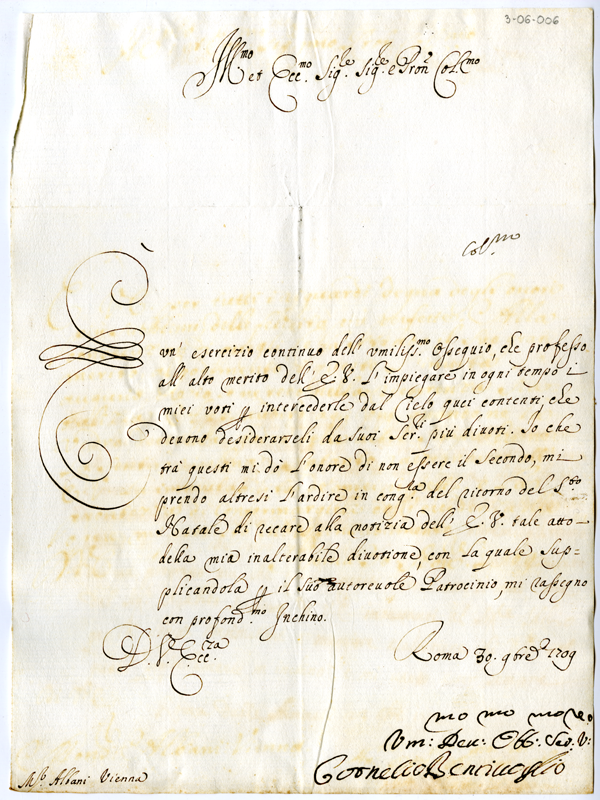 3-06-006
Ill.mo et Ecc.mo Sig.re Sig.re e Pron.e Col.mo
Col.mo
È un' esercizio continuo dell' umiliss.mo Ossequio, che professo
all' alto merito dell' E. V. l'impiegare in ogni tempo i
miei voti p intercederle dal Cielo quei contenti, che
devono desiderarseli da suoi Ser.ri più divoti. Io che
trà questi mi dò l'onore di non essere il secondo, mi
prendo altresì l'ardire in cong.ra del ritorno del S.to
Natale di recare alla notizia dell' E. V. tale atto
della mia inalterabile divotione, con la quale sup=
plicandola p il suo autorevole Patrocinio, mi rassegno
con profond.mo Inchino.
D. V. Ecc.za
Roma 30. 9bre 1709
Um:mo Dev:mo Obb:mo Ser.re V:
Cornelio Bentivoglio
M.r Albani Vienna